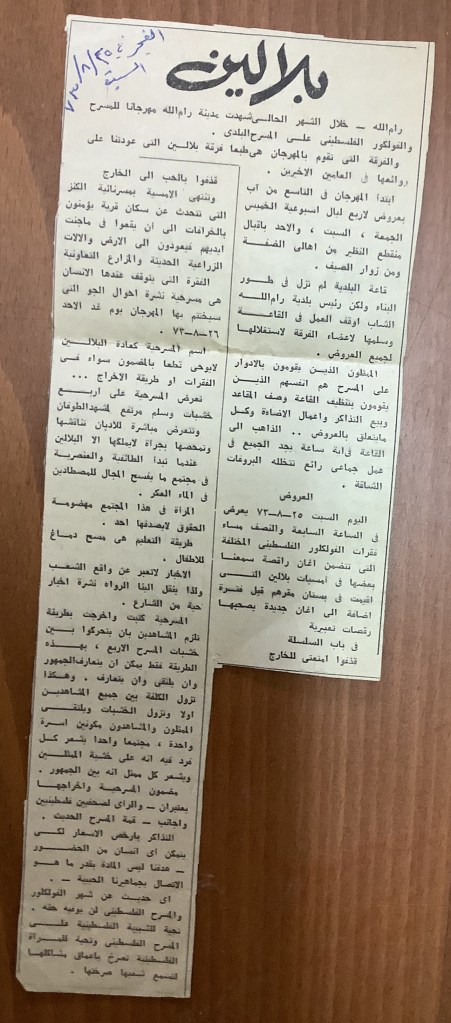 الفجر في ٢٥/٨/٧٣
السبت
بلالين
رام الله — خلال الشهر الحالى شهدت مدينة رام الله مهرجانا للمسرح
والفولكور الفلسطينى على المسرح البلدى .
والفرقة التى تقوم بالمهرجان هى طبعا فرقة بلالين التى عودتنا على
روائعها فى العامين الاخيرين .
ابتدأ المهرجان فى التاسع من آب
بعروض لاربع ليال اسبوعية الخميس
الجمعة ، السبت ، والاحد باقبال
منقطع النظير من اهالى الضفة
ومن زوار الصيف .
قاعة البلدية لم تزل فى طور
البناء ولكن رئيس بلدية رام الله
الشاب اوقف العمل فى القاعة
وسلمها لاعضاء الفرقة لاستغلالها
لجميع العروض .
الممثلون الذين يقومون بالادوار
على المسرح هم انفسهم الذين
يقومون بتنظيف القاعة وصف المقاعد
وبيع التذاكر واعمال الاضاءة وكل
مايتعلق بالعروض .. الذاهب الى
القاعة فى اية ساعة يجد الجميع فى
عمل جماعى رائع تتخلله البروفات
الشاقة .
العروض
اليوم السبت ٢٥-٨-٧٣ يعرض
فى الساعة السابعة والنصف مساء
فقرات الفولكلور الفلسطينى المختلفة
التى تتضمن اغان راقصة سمعنا
بعضها فى أمسيات بلالين التى
اقيمت فى بستان مقرهم قبل فترة
اضافة الى اغان جديدة يصحبها
رقصات تعبيرية
فى باب السلسلة
قذفوا امتعتى للخارج
قذفوا بالحب الى الخارج
وتنتهى الامسية بمسرنائية الكنز
التى تتحدث عن سكان قرية يؤمنون
بالخرافات الى ان يقعوا فى ماجنت
ايديهم فيعودون الى الارض والالات
الزراعية الحديثة والمزارع التعاونية
الفقرة التى يتوقف عندها الانسان
هى مسرحية نشرة احوال الجو التى
سيختتم بها المهرجان يوم غد الاحد
٢٦-٨-٧٣ .
اسم المسرحية كعادة البلالين
لايوحى قطعا بالمضمون سواء فى
الفقرات او طريقة الاخراج ...
تعرض المسرحية على اربع
خشبات وسلم مرتفع لمشهد الطوفان
وتتعرض مباشرة للاديان تناقشها
وتمحصها بجراة لايملكها الا البلالين
عندما تبدأ الطائفية والعنصرية
فى مجتمع ما يفسح المجال للمصطادين
فى الماء العكر .
المرأة فى هذا المجتمع مهضومة
الحقوق لايصدقها احد .
طريقة التعليم هى مسح دماغ
للاطفال .
الاخبار لاتعبر عن واقع الشعب
ولذا ينقل الينا الرواه نشرة اخبار
حية من الشارع .
المسرحية كتبت واخرجت بطريقة
تلزم المشاهدين بان يتحركوا بين
خشبات المسرح الاربع ، بهذه
الطريقة فقط يمكن ان يتعارف الجمهور
وان يلتقى وان يتعارف . وهكذا
تزول الكلفة بين جميع المشاهدين
اولا وتزول الخشبات ويلتقى
الممثلون والمشاهدون مكونين اسرة
واحدة ، مجتمعا واحدا يشعر كل
فرد فيه انه على خشبة الممثلين
ويشعر كل ممثل انه بين الجمهور .
مضمون المسرحية واخراجها
يعتبران — والراى لصحفيين فلسطينيين
واجانب — قمة المسرح الحديث .
التذاكر بارخص الاسعار لكى
يتمكن أى انسان من الحضور
— هدفنا ليس المادة بقدر ما هو
الاتصال بجماهيرنا الحبيبة — .
اى حديث عن شهر الفولكلور
والمسرح الفلسطينى لن يوفيه حقه .
تحية للشبيبة الفلسطينية على
المسرح الفلسطينى وتحية للمرأة
الفلسطينية تصرخ باعماق مشاكلها
لتسمع شعبها صرختها .